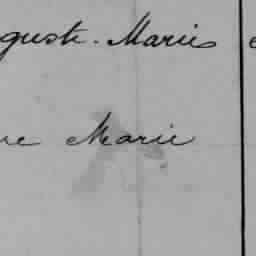 guste. Marie
ue Marie